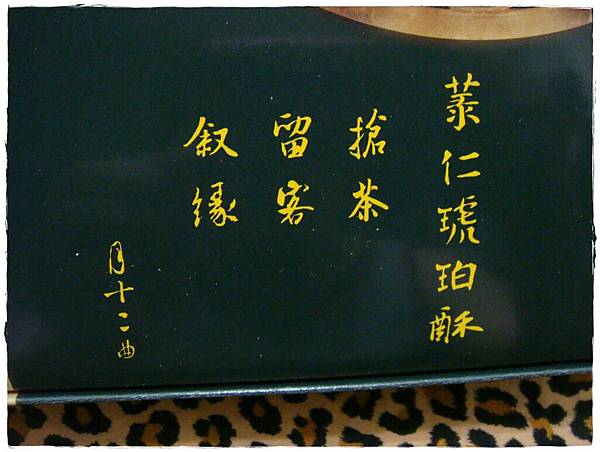 菉仁琥珀酥
搶茶
留客
叙緣
月十二曲